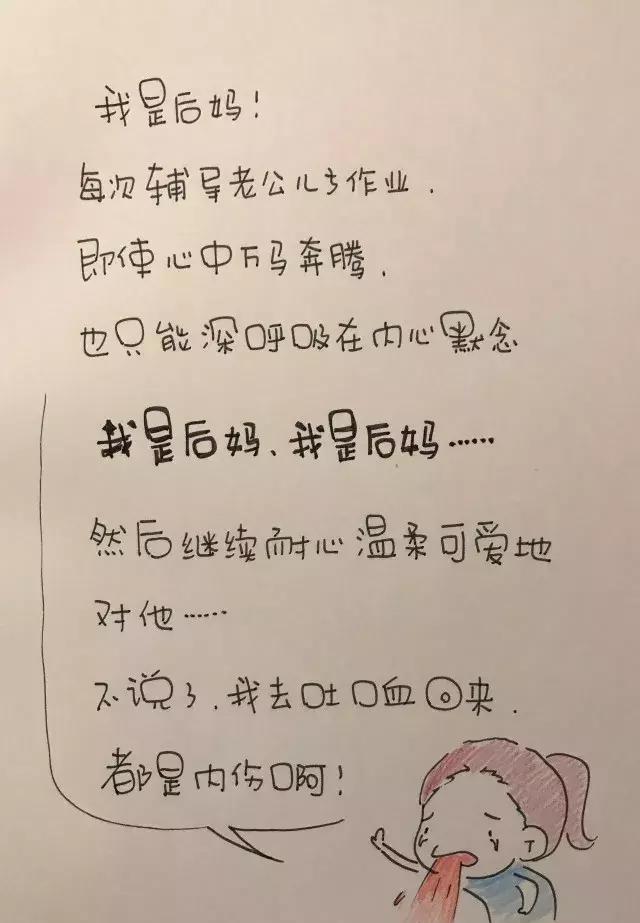 我是后妈！
每次辅导老公儿子作业.
即使心中万马奔腾.
也只能深呼吸在内心默念
我是后妈、我是后妈……
然后继续耐心温柔可爱地
对他……
不说了.我去吐口血回来.
都是内伤啊！